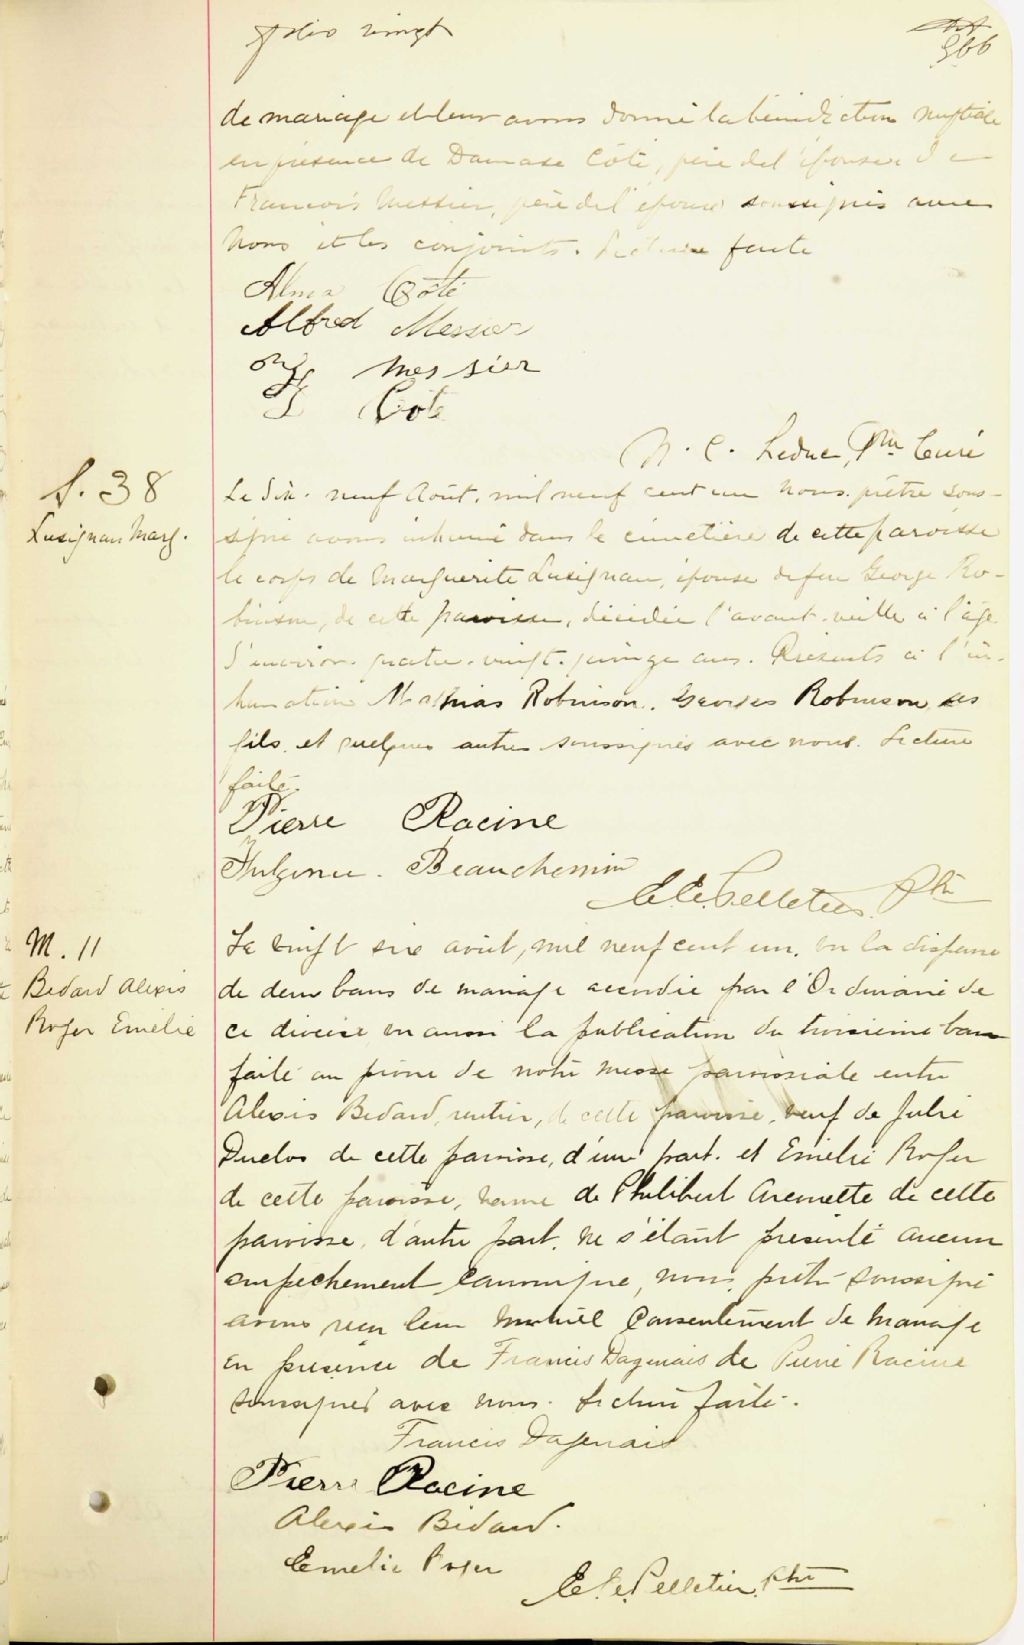 folio vingt
366
de mariage et leur avons donné la bénédiction nuptiale
en présence de Damase Côté, père de l'épouse et de
Francois Messier, père de l'époux soussignés avec
nous et les conjoints. Lecture faite
Alma Côté
Alfred Messier
Messier
Côté
N. C. Leduc, Ptre Curé
S. 38
Lusignan Marg.
Le dix-neuf Août, mil neuf cent un nous prêtre sous-
signé avons inhumé dans le cimetière de cette paroisse
le corps de Marguerite Lusignan, épouse de feu George Ro-
binson, de cette paroisse, décédée l'avant-veille à l'âge
d'environ quatre-vingt-quinze ans. Présents à l'in-
humation Mathias Robinson, Georges Robinson, ses
fils, et quelques autres soussignés avec nous. Lecture
faite.
Pierre Racine
Fulgence Beauchemin
E. E. Pelletier Ptre
M. 11
Bedard Alexis
Roger Emélie
Le vingt six août, mil neuf cent un, vu la dispense
de deux bans de mariage accordée par l'Ordinaire de
ce diocèse vu aussi la publication du troisième ban
faite au prône de notre messe paroissiale entre
Alexis Bedard, rentier, de cette paroisse, veuf de Julie
Duclos de cette paroisse, d'une part, et Emélie Roger
de cette paroisse, veuve de Philibert Arcenette de cette
paroisse, d'autre part, ne s'étant présenté aucun
empêchement canonique, nous, prêtre soussigné
avons reçu leur mutuel consentement de mariage
en présence de Francis Dagenais de Pierre Racine
soussignés avec nous. Lecture faite.
Francis Dagenais
Pierre Racine
Alexis Bedard.
Emelie Roger
E. E. Pelletier, Ptre